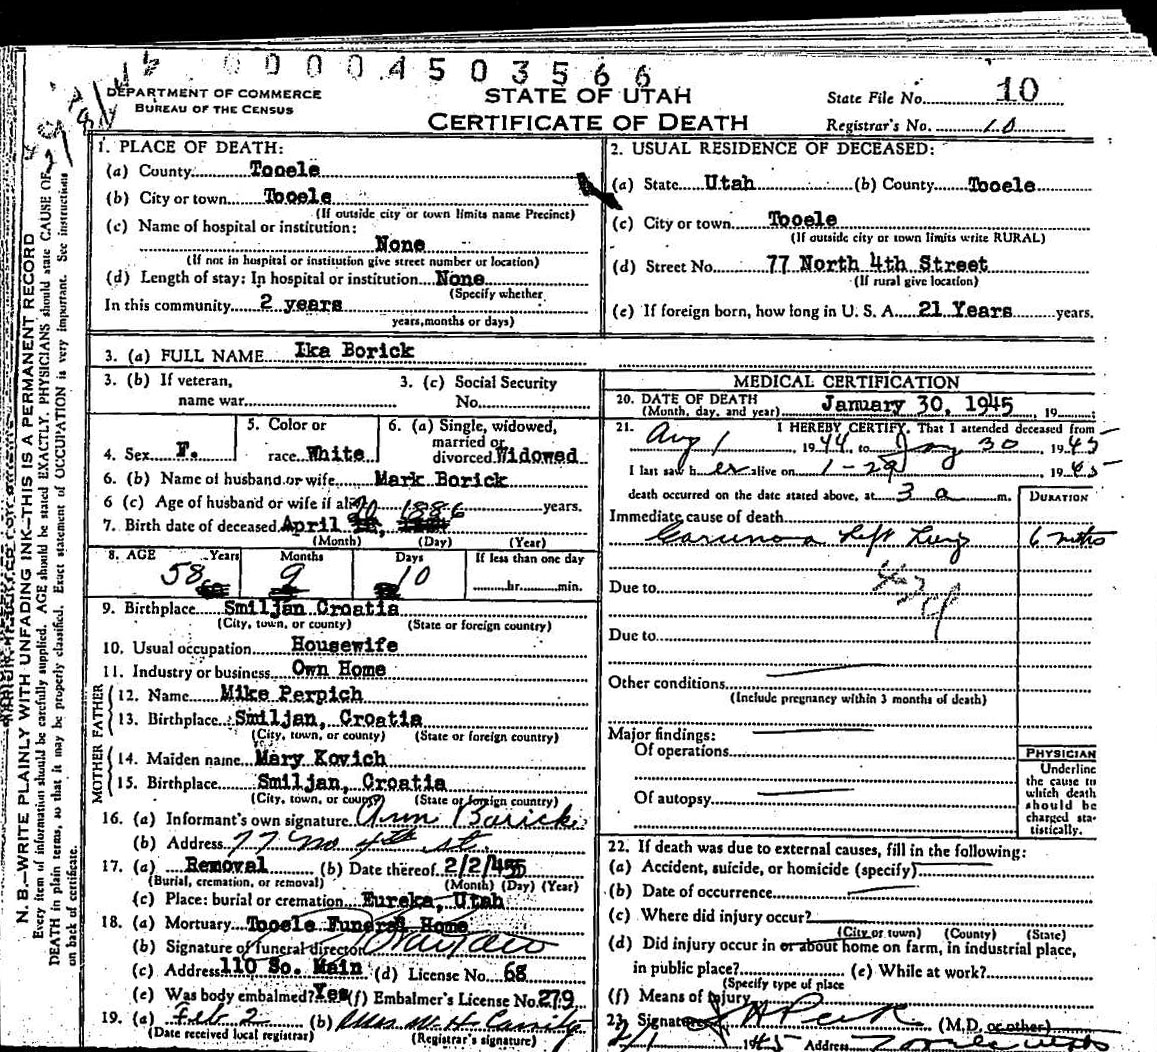 0 0 0 0 4 5 0 3 5 6 6
DEPARTMENT OF COMMERCE
BUREAU OF THE CENSUS
STATE OF UTAH
CERTIFICATE OF DEATH
State File No. 10
Registrar's No. 10
N. B.—WRITE PLAINLY WITH UNFADING INK—THIS IS A PERMANENT RECORD
Every item of information should be carefully supplied. AGE should be stated EXACTLY. PHYSICIANS should state CAUSE OF
DEATH in plain terms, so that it may be properly classified. Exact statement of OCCUPATION is very important. See instructions
on back of certificate.
1. PLACE OF DEATH:
(a) County Tooele
(b) City or town Tooele
(If outside city or town limits name Precinct)
(c) Name of hospital or institution:
None
(If not in hospital or institution give street number or location)
(d) Length of stay: In hospital or institution None
(Specify whether
In this community 2 years
years, months or days)
2. USUAL RESIDENCE OF DECEASED:
(a) State Utah (b) County Tooele
(c) City or town Tooele
(If outside city or town limits write RURAL)
(d) Street No. 77 North 4th Street
(If rural give location)
(e) If foreign born, how long in U. S. A. 21 Years years.
3. (a) FULL NAME Ika Borick
3. (b) If veteran,
name war
3. (c) Social Security
No.
4. Sex F.
5. Color or
race White
6. (a) Single, widowed,
married or
divorced Widowed
6. (b) Name of husband or wife Mark Borick
6 (c) Age of husband or wife if alive years.
20 1886
7. Birth date of deceased April
(Month) (Day) (Year)
8. AGE Years Months Days If less than one day
58 9 10 hr. min.
9. Birthplace Smiljan Croatia
(City, town, or county) (State or foreign country)
10. Usual occupation Housewife
11. Industry or business Own Home
FATHER
12. Name Mike Perpich
13. Birthplace Smiljan, Croatia
(City, town, or county) (State or foreign country)
MOTHER
14. Maiden name Mary Kovich
15. Birthplace Smiljan, Croatia
(City, town, or county) (State or foreign country)
16. (a) Informant's own signature Ann Borick
(b) Address 77 No 4th St.
17. (a) Removal (b) Date thereof 2/2/45
(Burial, cremation, or removal) (Month) (Day) (Year)
(c) Place: burial or cremation Eureka, Utah
18. (a) Mortuary Tooele Funeral Home
(b) Signature of funeral director
(c) Address 110 So. Main (d) License No. 68
(e) Was body embalmed? Yes (f) Embalmer's License No. 279
19. (a) Feb 2 (b) Mrs W. H. Cassity
(Date received local registrar) (Registrar's signature)
MEDICAL CERTIFICATION
20. DATE OF DEATH
(Month, day, and year) January 30, 1945, 19
21. I HEREBY CERTIFY, That I attended deceased from
Aug 1 1944, to Jany 30 1945
I last saw her alive on 1-29 1945
death occurred on the date stated above, at 3 a m.
DURATION
Immediate cause of death
Carcinoma Left Lung 6 mths
Due to
Due to
Other conditions
(Include pregnancy within 3 months of death)
Major findings:
Of operations
Of autopsy
PHYSICIAN
Underline
the cause to
which death
should be
charged sta-
tistically.
22. If death was due to external causes, fill in the following:
(a) Accident, suicide, or homicide (specify)
(b) Date of occurrence
(c) Where did injury occur?
(City or town) (County) (State)
(d) Did injury occur in or about home on farm, in industrial place,
in public place? (e) While at work?
(Specify type of place
(f) Means of Injury
23. Signature J H Peck (M.D. or other)
2/1 1945 Address Tooele Utah